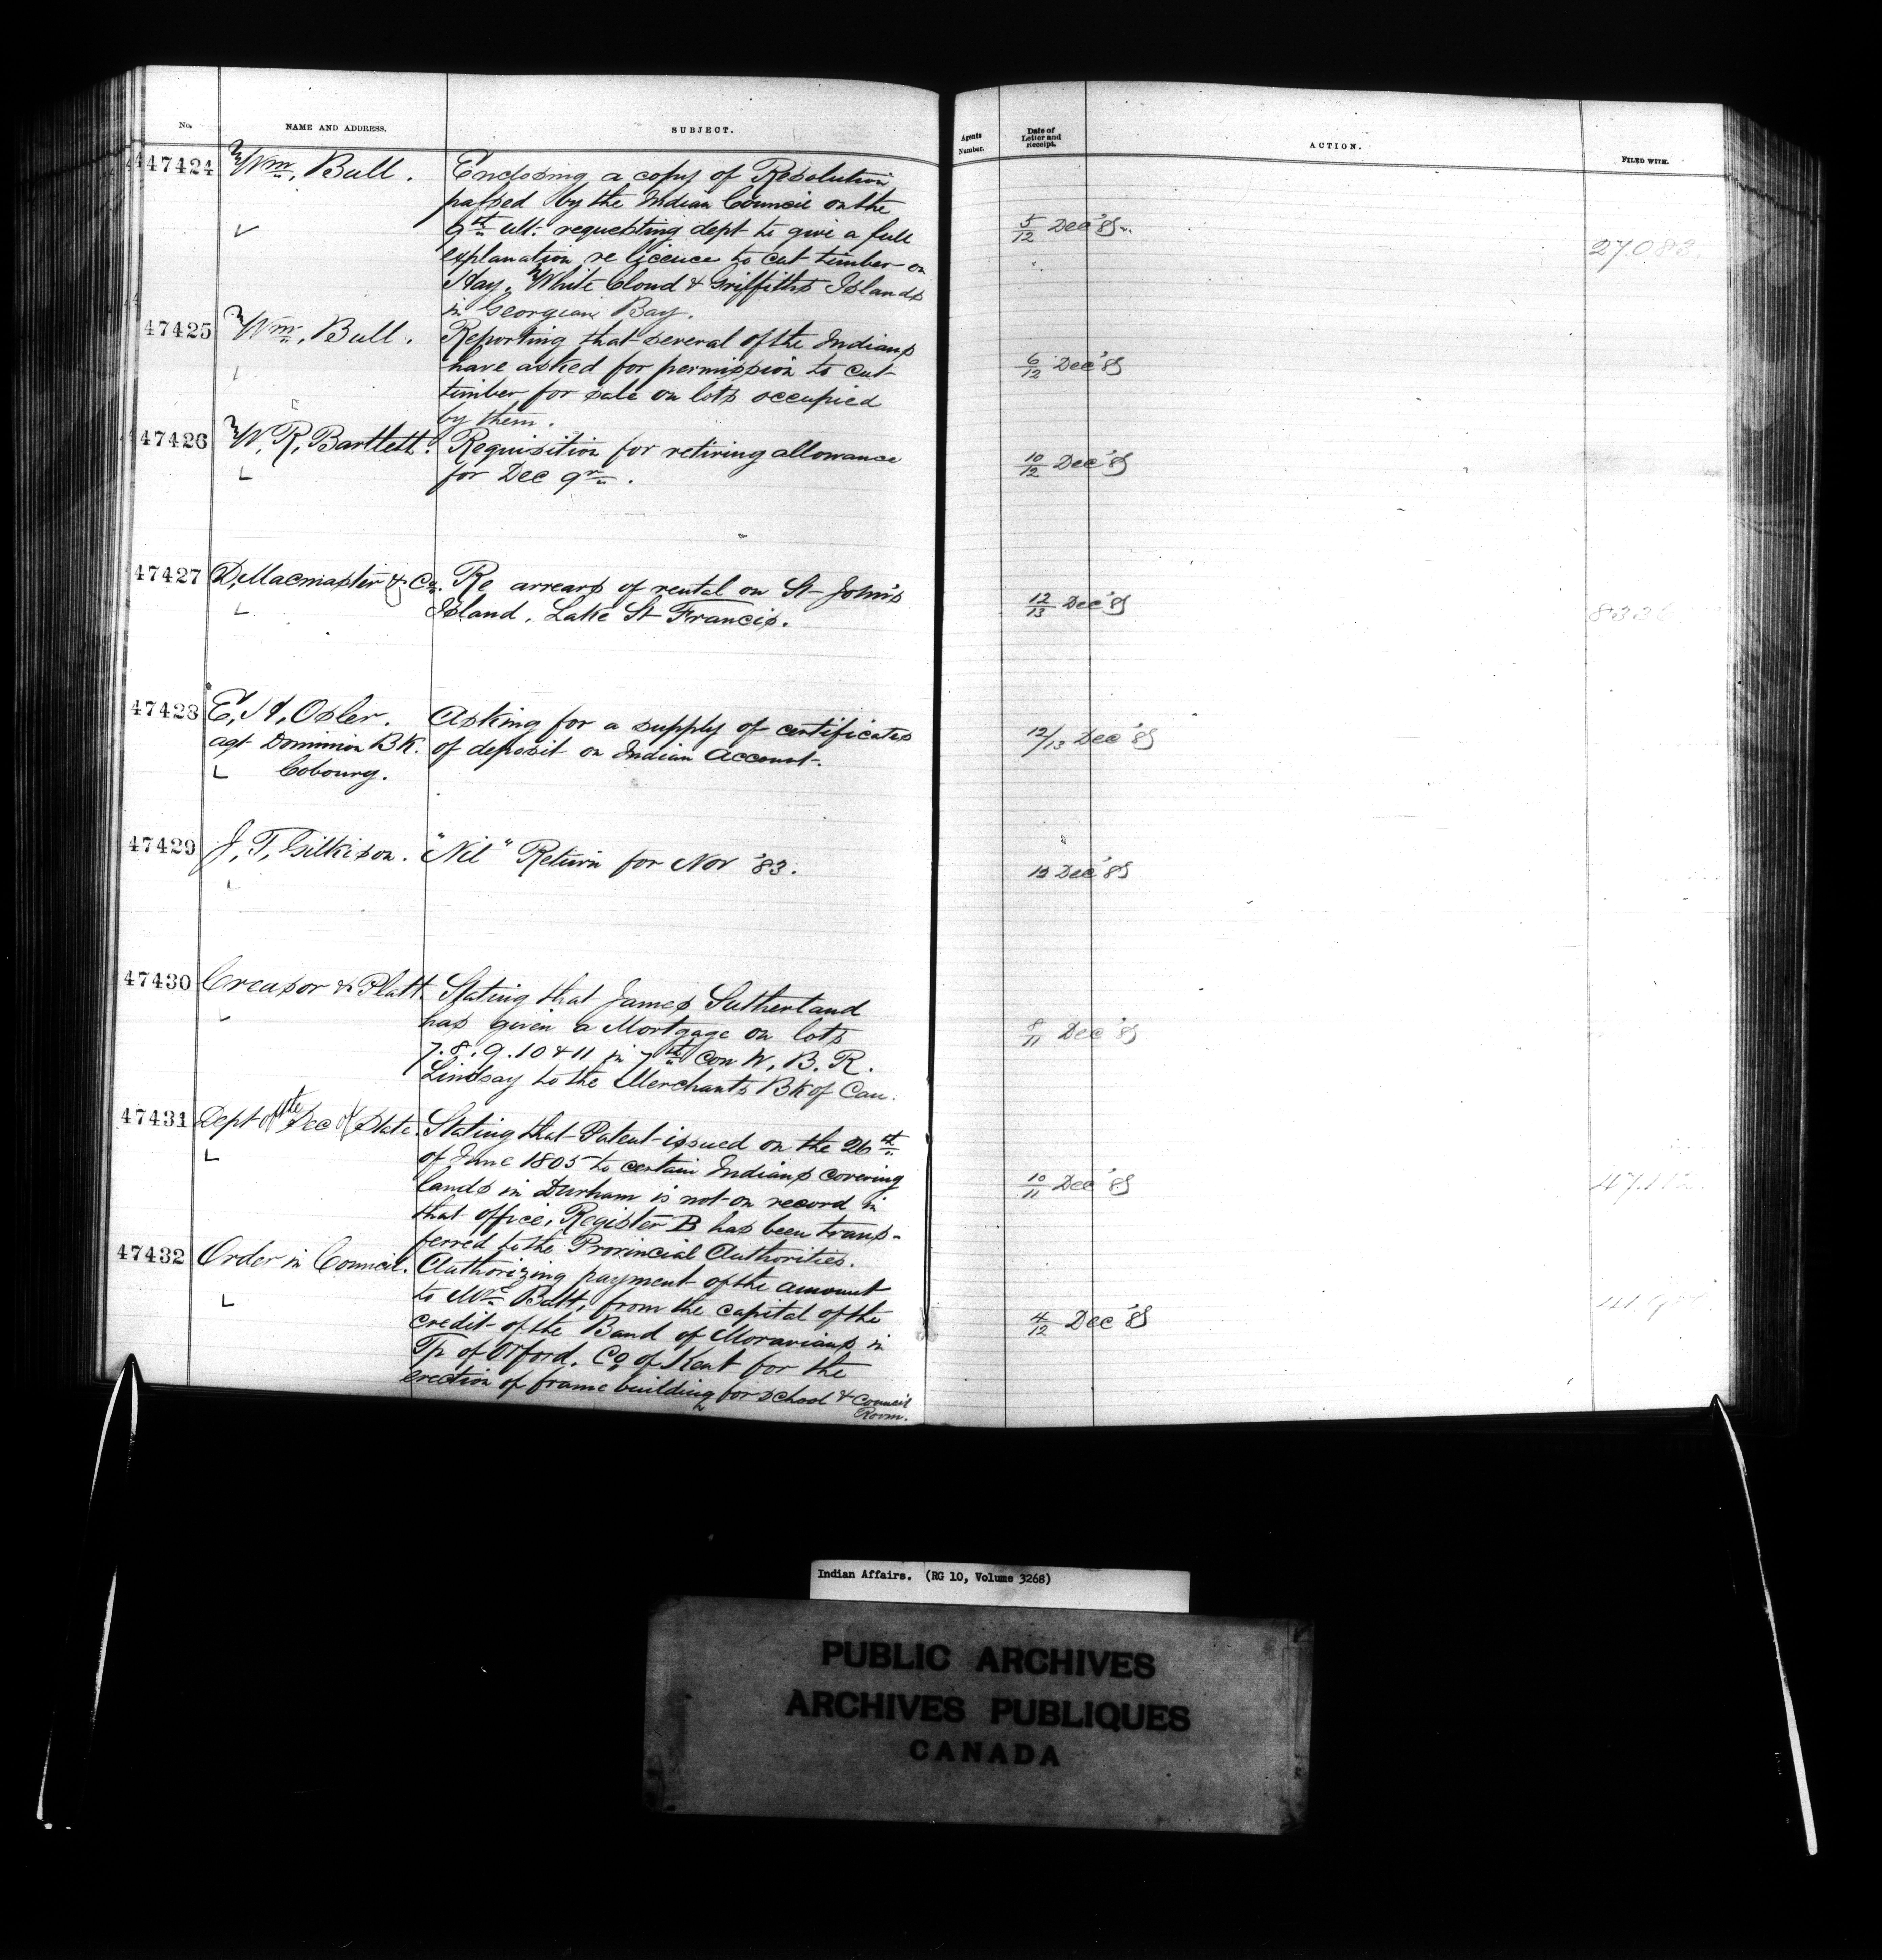 No.
NAME AND ADDRESS.
SUBJECT.
Agents Number.
Date of Letter and Receipt.
ACTION.
FILED WITH.
47424
Wm. Bull.
Enclosing a copy of Resolution
passed by the Indian Council on the
ult: requesting dept to give a full
explanation re licence to cut timber on
Hay, White Cloud & Griffiths Islands
in Georgian Bay.
5/12 Dec '83
27.083.
47425
Wm. Bull.
Reporting that several of the Indians
have asked for permission to cut
timber for sale on lots occupied
by them.
6/12 Dec '83
47426
W. R. Bartlett.
Requisition for retiring allowance
for Dec qr.
10/12 Dec '83
47427
D. Macmaster & Co.
Re arrears of rental on St John's
Island, Lake St Francis.
12/13 Dec '83
47428
E. H. Osler.
agt Dominion BK.
Cobourg.
Asking for a supply of certificates
of deposit on Indian Account.
12/13 Dec '83
47429
J. T. Gilkison.
"Nil" Return for Nov '83.
13 Dec '83
47430
Creasor & Platt.
Stating that James Sutherland
has given a Mortgage on lots
7. 8. 9. 10 & 11 in 7th Con W. B. R.
Lindsay to the Merchants Bk of Can.
8/11 Dec '83
47431
Dept of the Sec of State.
Stating that Patent issued on the 26th
of June 1805 to certain Indians covering
lands in Durham is not on record in
that office, Register B has been trans-
ferred to the Provincial Authorities.
10/11 Dec '83
47432
Order in Council.
Authorizing payment of the amount
to Mr. from the capital of the
credit of the Band of Moravians in
Tp of Orford, Co of Kent for the
erection of frame building for school & Council
Room.
4/12 Dec '83
Indian Affairs. (RG 10, Volume 3268)
PUBLIC ARCHIVES
ARCHIVES PUBLIQUES
CANADA